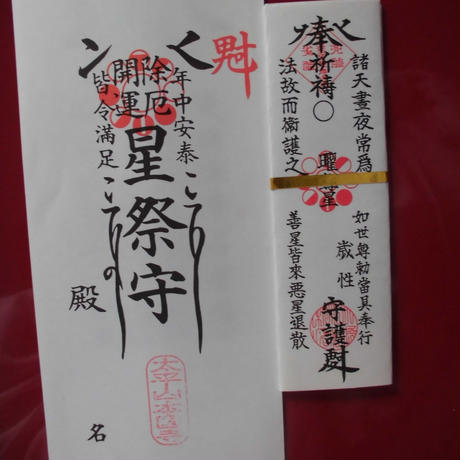 魁
年中安泰
除厄
星祭守
開運
皆令満足
殿
名
奉祈祷○
曜
星
諸天晝夜常爲
法故而衛護之
如世尊勅當具奉行
歳性
善星皆來悪星退散
守護